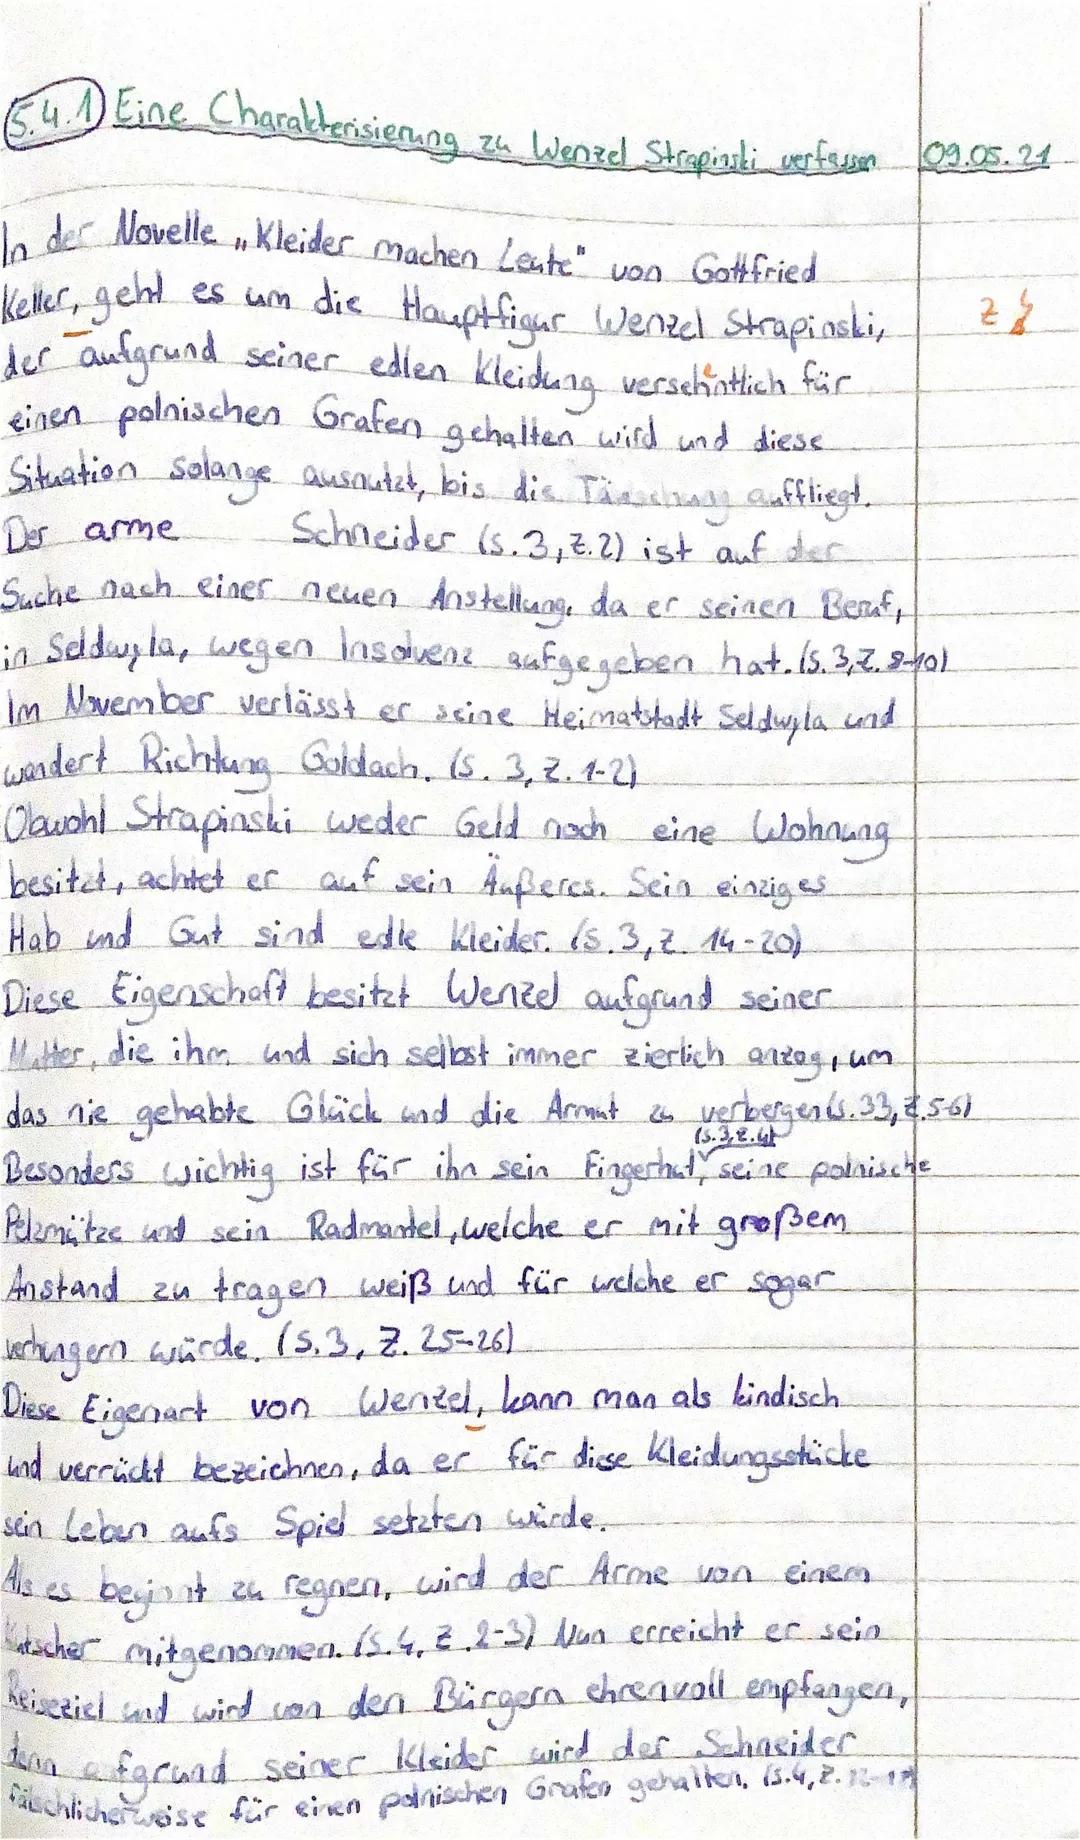 5.4.1) Eine Charakterisierung zu Wenzel Strapinski verfassen 09.05.21
In der Novelle „Kleider machen Leute" von Gottfried
Keller, geht es um die Hauptfigur Wenzel Strapinski, Z
der aufgrund seiner edlen Kleidung versehentlich für
einen polnischen Grafen gehalten wird und diese
Situation solange ausnutzt, bis die Täuschung auffliegt.
Der arme Schneider (S.3, Z.2) ist auf der
Suche nach einer neuen Anstellung, da er seinen Beruf,
in Seldwyla, wegen Insolvenz aufgegeben hat. (S.3, Z. 8-10)
Im November verlässt er seine Heimatstadt Seldwyla und
wandert Richtung Goldach. (S. 3, Z. 1-2)
Obwohl Strapinski weder Geld noch eine Wohnung
besitzt, achtet er auf sein Äußeres. Sein einziges
Hab und Gut sind edle Kleider. (S.3, Z. 14-20)
Diese Eigenschaft besitzt Wenzel aufgrund seiner
Mutter, die ihn und sich selbst immer zierlich anzog, um
das nie gehabte Glück und die Armut zu verbergen (S.33, Z.5-6)
(S.3, Z.4)
Besonders wichtig ist für ihn sein Fingerhut, seine polnische
Pelzmütze und sein Radmantel, welche er mit großem
Anstand zu tragen weiß und für welche er sogar
verhungern würde. (S.3, Z. 25-26)
Diese Eigenart von Wenzel, kann man als kindisch
und verrückt bezeichnen, da er für diese Kleidungsstücke
sein Leben aufs Spiel setzten würde.
Als es beginnt zu regnen, wird der Arme von einem
Kutscher mitgenommen. (S.4, Z.2-3) Nun erreicht er sein
Reiseziel und wird von den Bürgern ehrenvoll empfangen,
denn aufgrund seiner Kleider wird der Schneider
fälschlicherweise für einen polnischen Grafen gehalten. (S.4, Z.